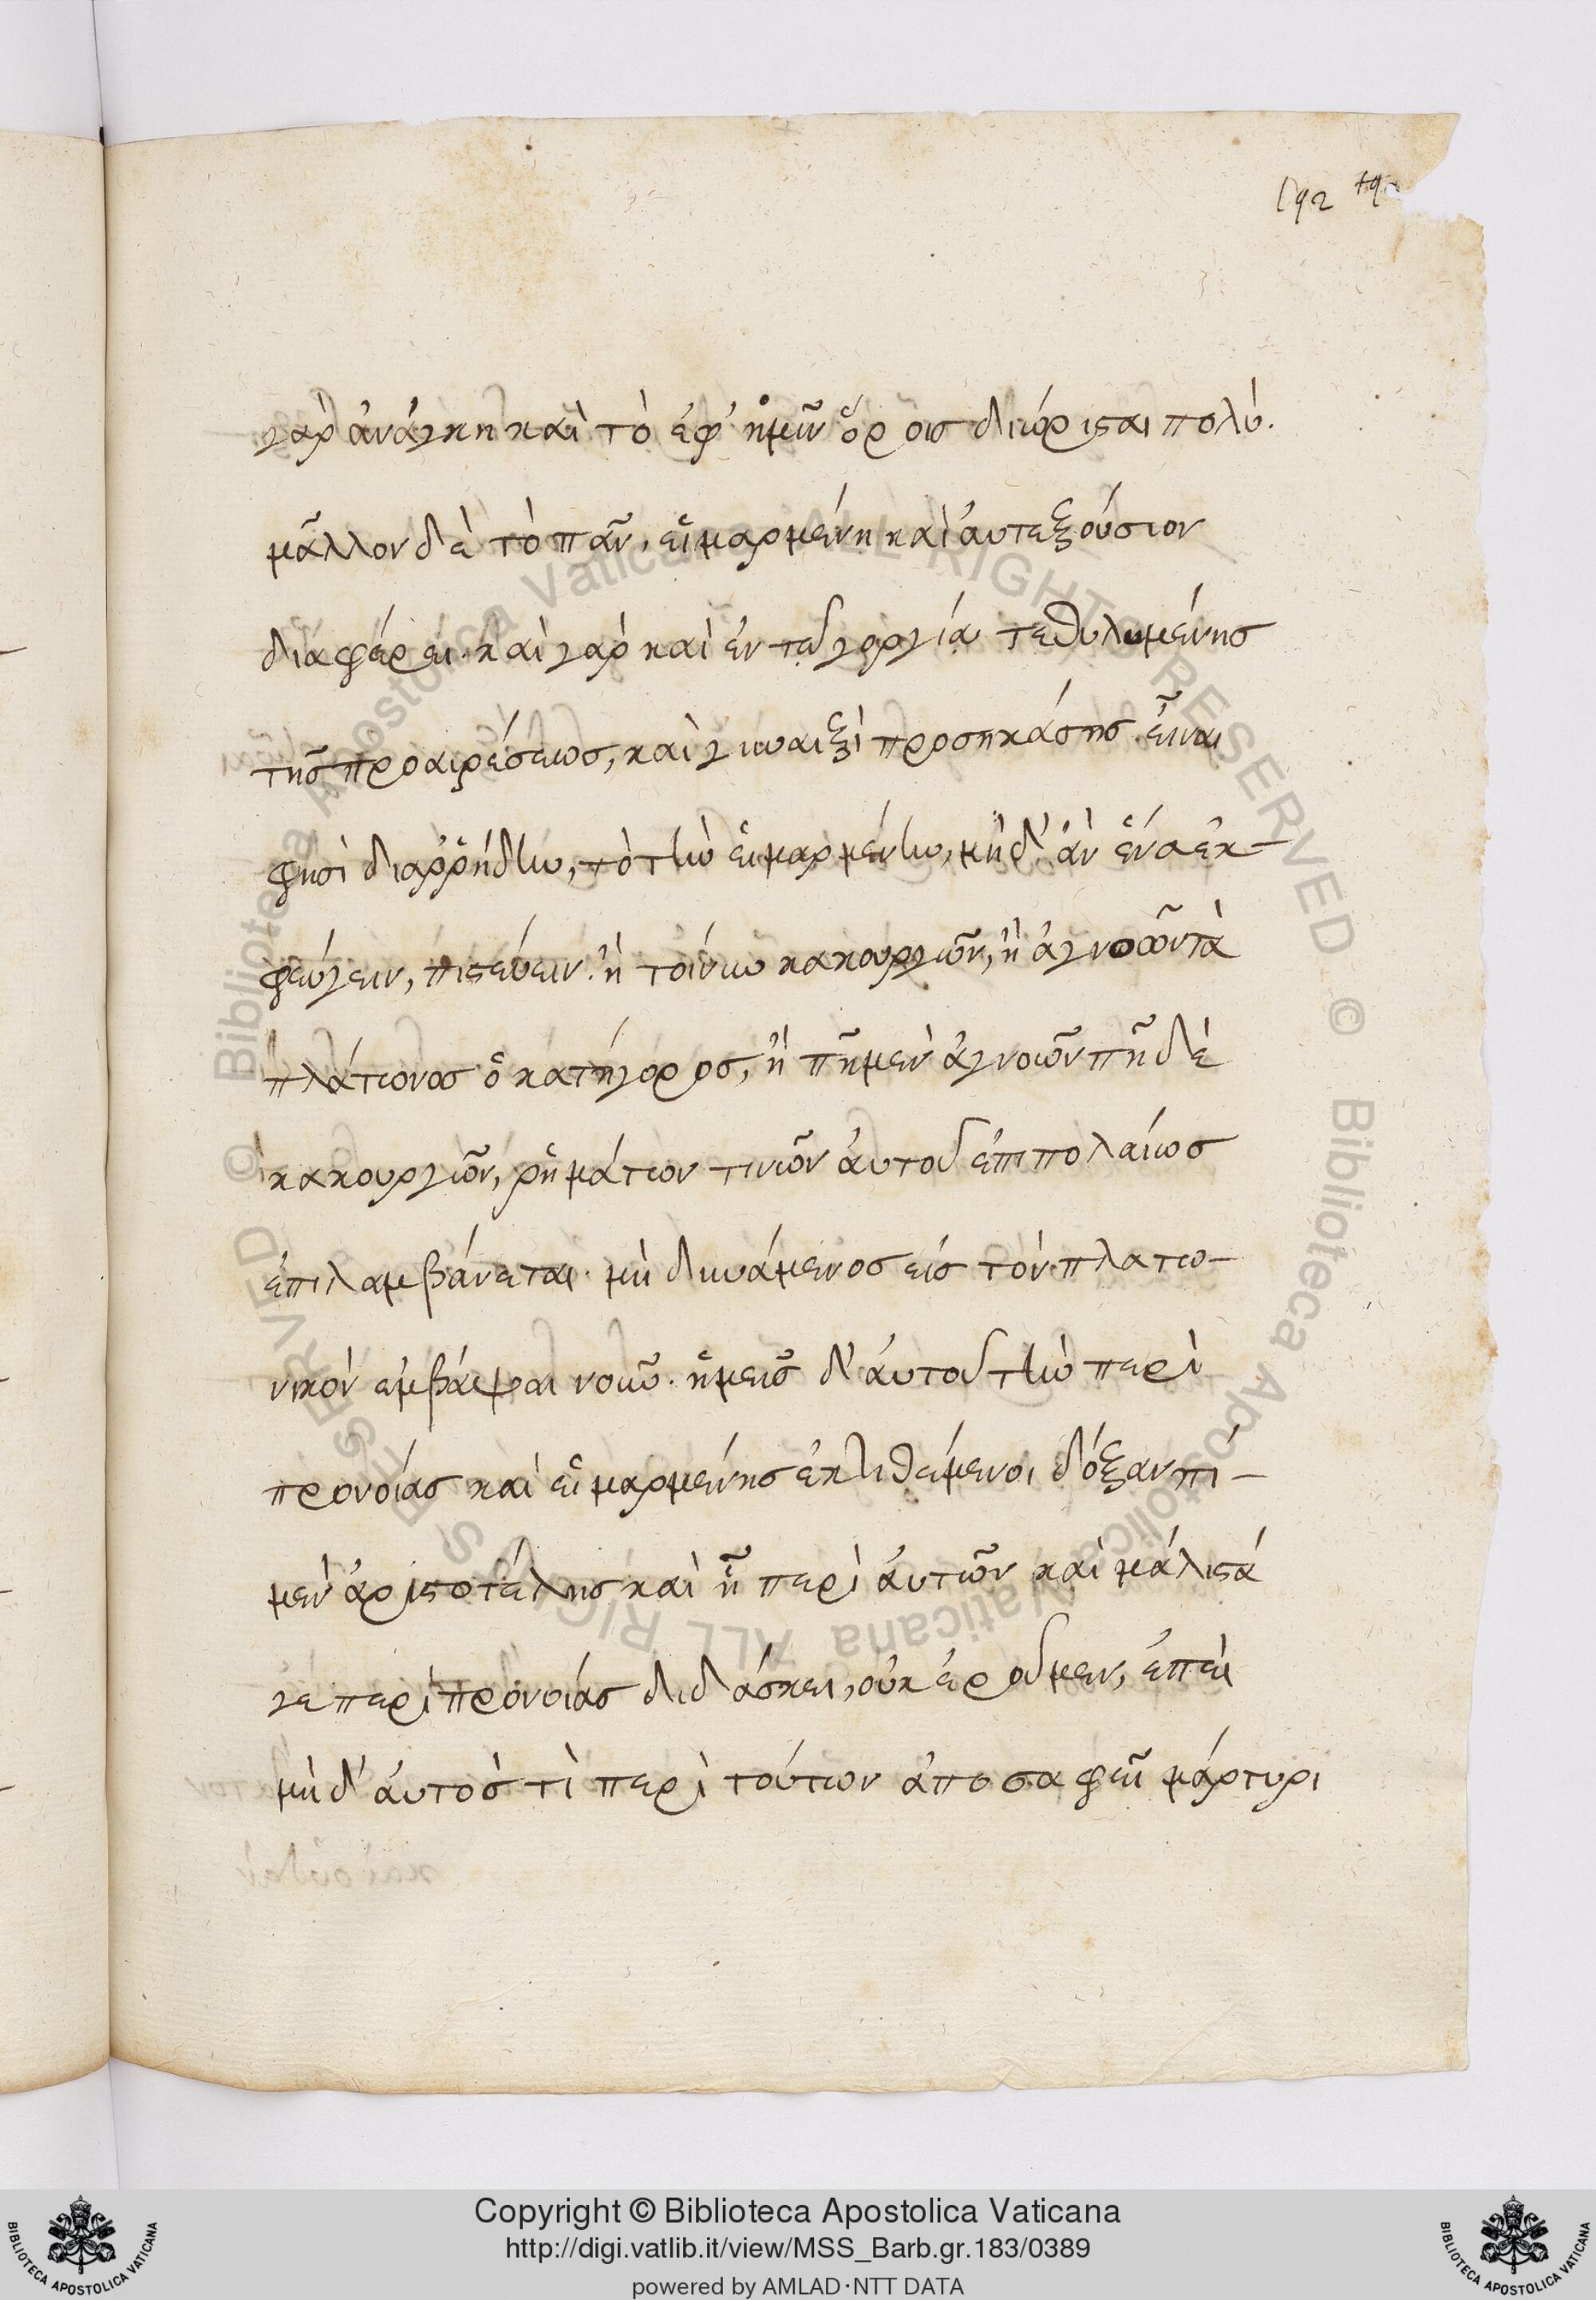 192
γὰρ ἀνάγκη καὶ τὸ ἐφ' ἡμῖν ὅροις διώρισαι πολύ.
μᾶλλον δὲ τὸ πᾶν, εἱμαρμένη καὶ ἀυτεξούσιον
διαφέρει. καὶ γὰρ καὶ ἐν τῷ γοργία τεθυλωμένης
τῆς προαιρέσεως, καὶ γυναιξὶ προσηκάσης. εἶναι
φησὶ διαῤῥήδην, τὸ τὴν εἱμαρμένην, μὴδ' ἂν ἕνα ἐκ-
φεύγειν, πιστεύειν. ἢ τοίνυν κακουργῶν, ἢ ἀγνοῶν τὰ
πλάτωνος ὁ κατήγορος, ἢ πῆ μὲν ἀγνοῶν πῆ δὲ
κακουργῶν, ῥημάτων τινῶν ἀυτοῦ ἐπιπολαίως
ἐπιλαμβάνεται. μὴ δυνάμενος εἰς τὸν πλατω-
νικὸν ἐμβάψαι νοῦν. ἡμεῖς δ' ἀυτοῦ τὴν περὶ
προνοίας καὶ εἱμαρμένης ἐκτιθέμενοι δόξαν τί-
μὲν ἀριστοτέλης καὶ ἧ περὶ ἀυτῶν καὶ μάλιστά
γε περὶ προνοίας διδάσκει, οὐκ ἐροῦμεν, ἐπεὶ
μὴδ' ἀυτός τὶ περὶ τούτων ἀποσαφεῖ μάρτυρι
Copyright © Biblioteca Apostolica Vaticana
http://digi.vatlib.it/view/MSS_Barb.gr.183/0389
powered by AMLAD·NTT DATA
BIBLIOTECA APOSTOLICA VATICANA
BIBLIOTECA APOSTOLICA VATICANA